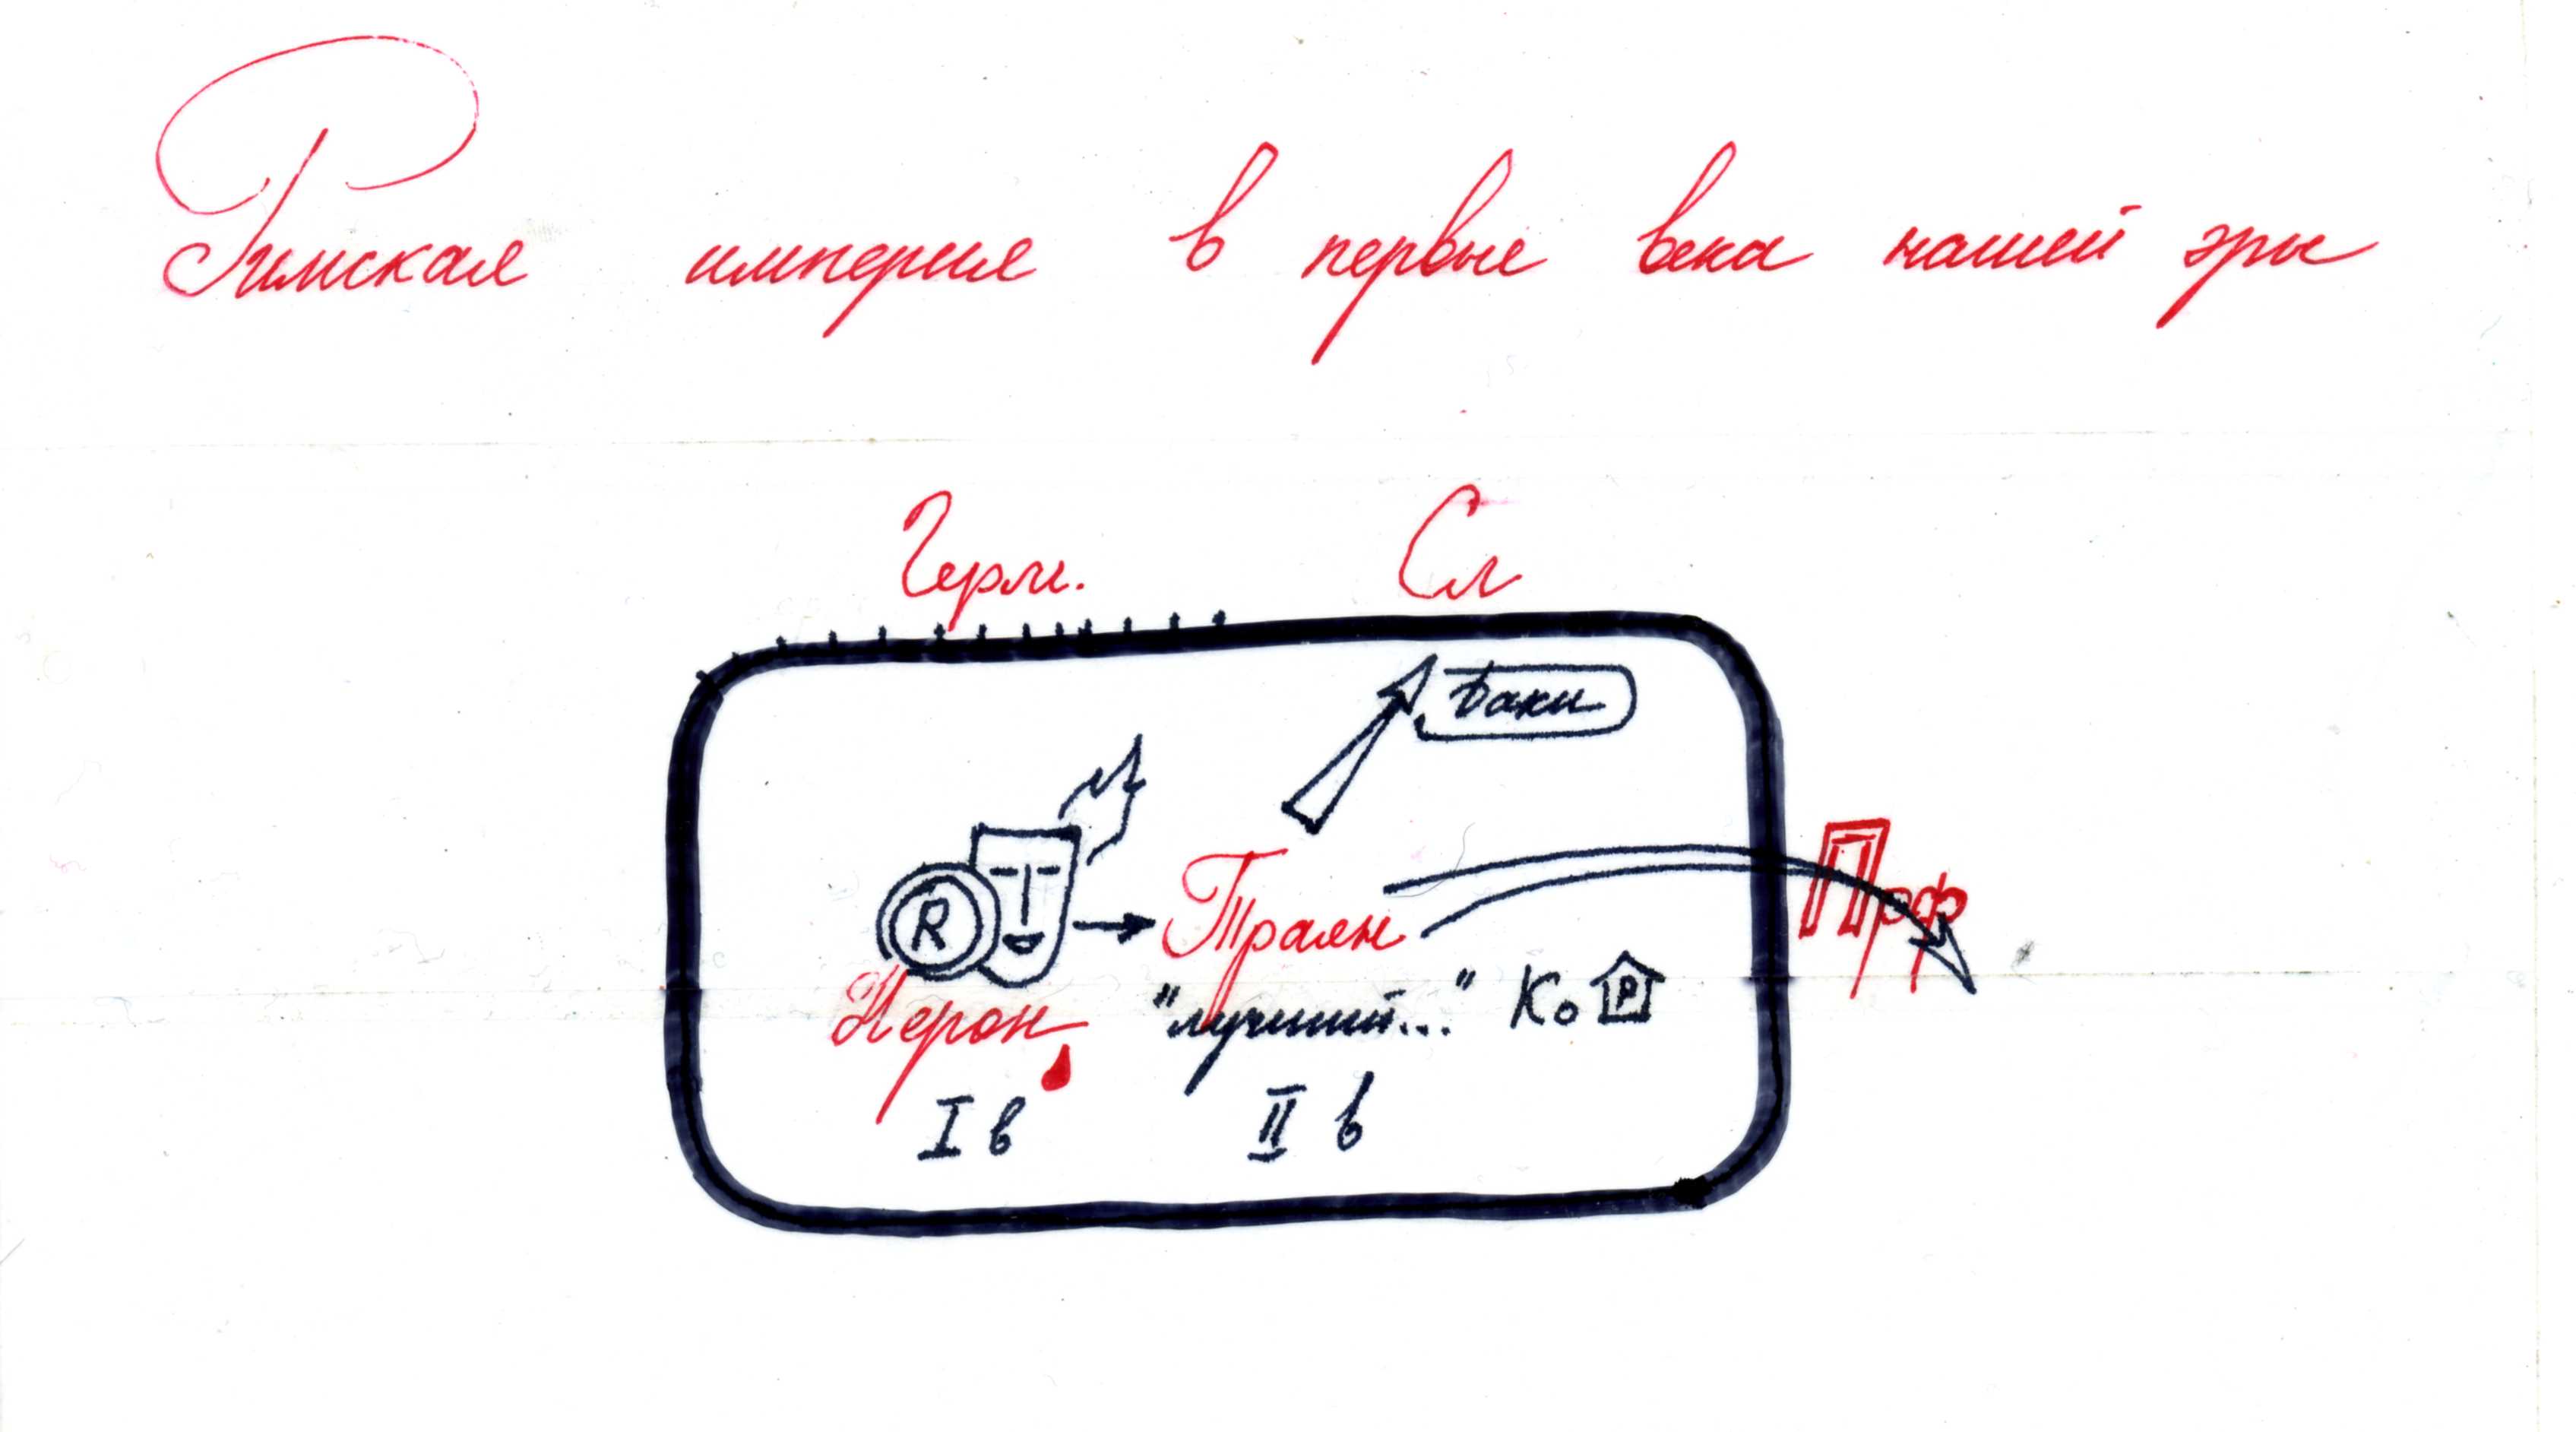 Римская империя в первые века нашей эры
Герм. Сл
Даки
R
Траян Прф
Нерон "лучший..." Ко Р
I в II в